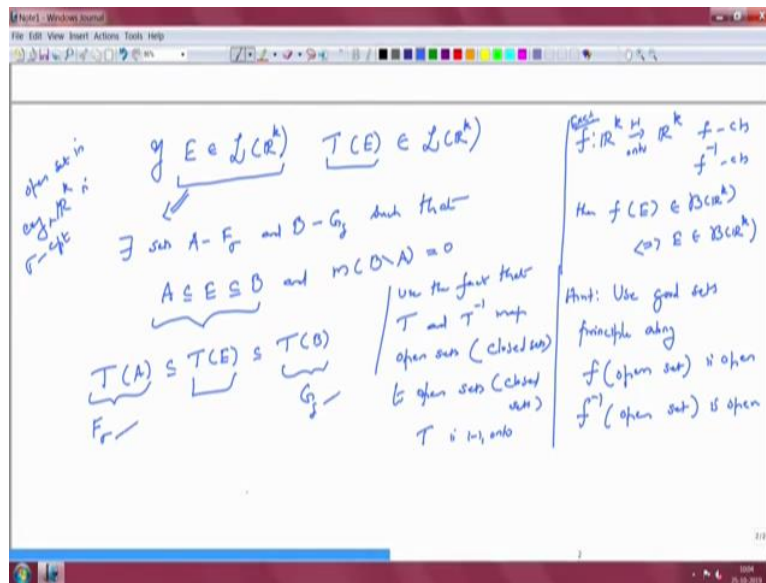 Note1 - Windows Journal
File Edit View Insert Actions Tools Help
open set in
any ℝ^k is
σ-cpt
If E ∈ ℒ(ℝ^k) T(E) ∈ ℒ(ℝ^k)
∃ sets A - F_σ and B - G_δ such that
A ⊆ E ⊆ B and m(B∖A) = 0
T(A) ⊆ T(E) ⊆ T(B)
F_σ G_δ
Use the fact that
T and T^-1 map
open sets (closed sets)
to open sets (closed
sets)
T is 1-1, onto
f: ℝ^k 1-1 → onto ℝ^k f - cts
f^-1 - cts
then f(E) ∈ B(ℝ^k)
<=> E ∈ B(ℝ^k)
Hint: Use good sets
principle along
f(open set) is open
f^-1(open set) is open
2
2/2
10:04
25-10-2019